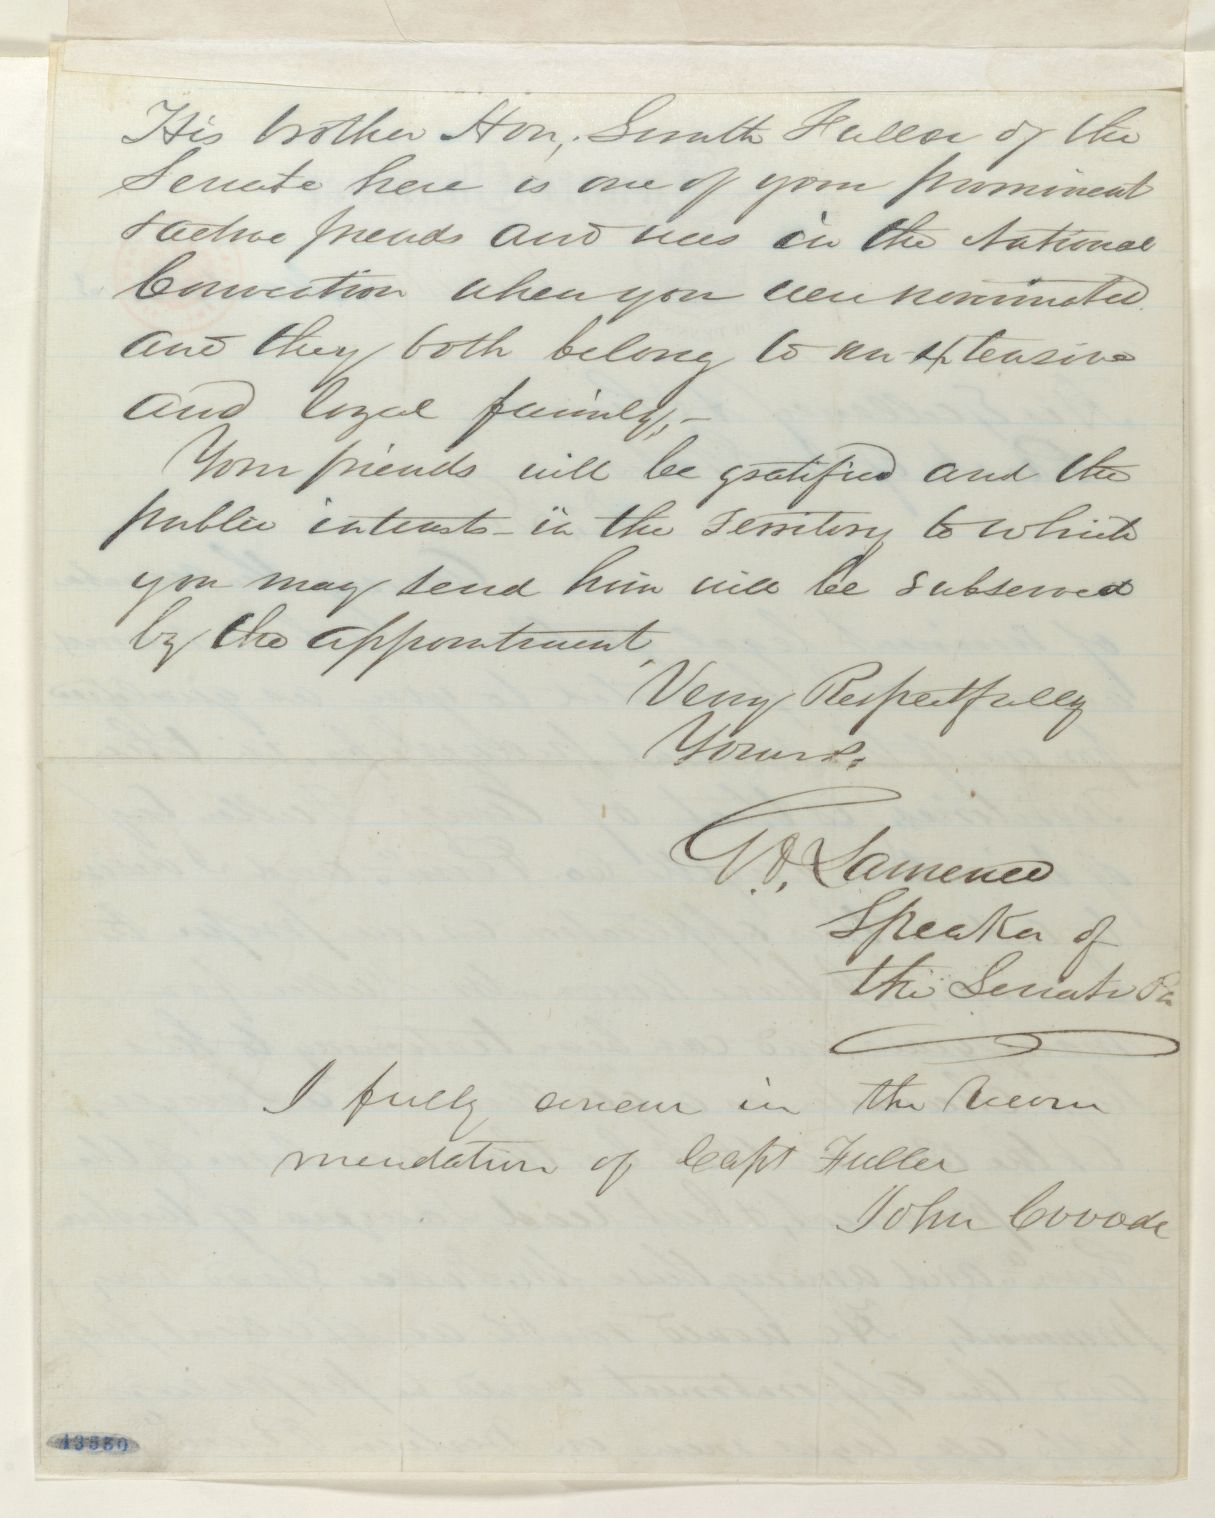 His brother Hon, Smith Fuller of the
Senate here is one of your prominent
& active friends and was in the National
Convention when you were nominated.
and they both belong to an extensive
and loyal family,-
Your friends will be gratified and the
public interests in the Territory to which
you may send him will be subserved
by the appointment.
Very Respectfully
Yours.
G. V. Lawrence
Speaker of
the Senate Pa
I fully concur in the recom
mendation of Capt Fuller
John Covode
43530